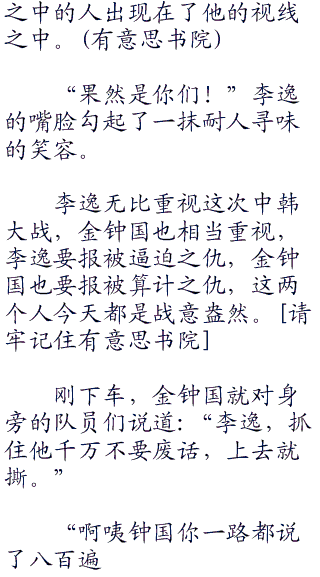 之中的人出现在了他的视线
之中。(有意思书院)
“果然是你们！”李逸
的嘴脸勾起了一抹耐人寻味
的笑容。
李逸无比重视这次中韩
大战，金钟国也相当重视，
李逸要报被逼迫之仇，金钟
国也要报被算计之仇，这两
个人今天都是战意盎然。[请
牢记住有意思书院]
刚下车，金钟国就对身
旁的队员们说道：“李逸，抓
住他千万不要废话，上去就
撕。”
“啊咦钟国你一路都说
了八百遍